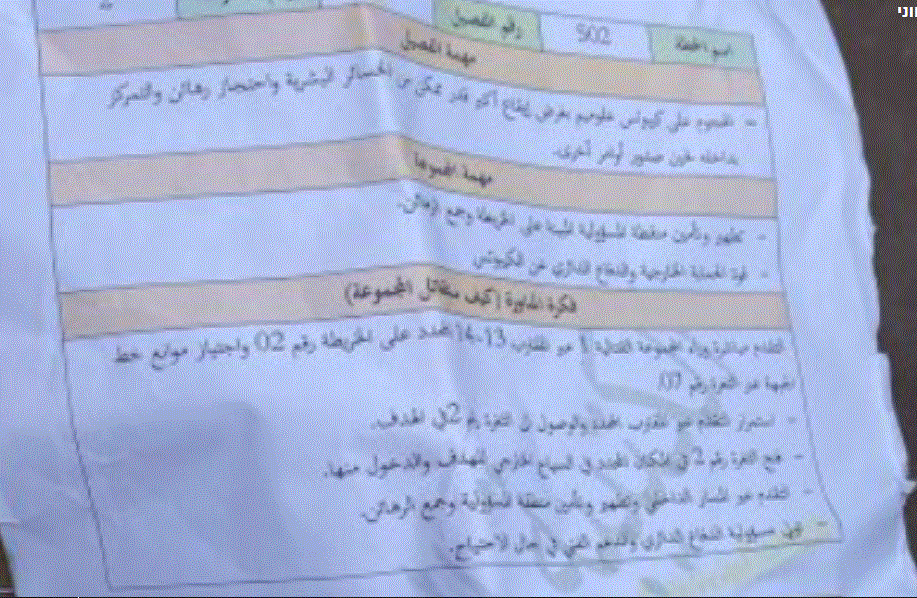 اسم الخطة 502 رقم الفصيل
مهمة الفصيل
– الهجوم على كيبوتس علوميم بغرض إيقاع أكبر قدر ممكن من الخسائر البشرية واحتجاز رهائن والتمركز
بداخله لحين صدور أوامر أخرى.
مهمة المجموعة
- تطهير وتأمين منطقة المسؤولية المبينة على الخريطة وجمع الرهائن.
- الحماية الخارجية والدفاع الدائري عن الكيبوتس
فكرة المناورة (كيف ستقاتل المجموعة)
التقدم مباشرة وراء المجموعة القتالية 1 نحو المقترب 13-14 المحدد على الخريطة رقم 02 واجتياز موانع خط
الجبهة عبر الثغرة رقم
- استمرار التقدم نحو المقترب المحدد والوصول إلى الثغرة رقم 2 في الهدف.
- فتح الثغرة رقم 2 في المكان المحدد في السياج الخارجي للهدف والدخول منها.
- التقدم نحو المسار الداخلي وتطهير وتأمين منطقة المسؤولية وجمع الرهائن.
- مسؤولية الدفاع الدائري والدعم الفني في حال الاحتياج.